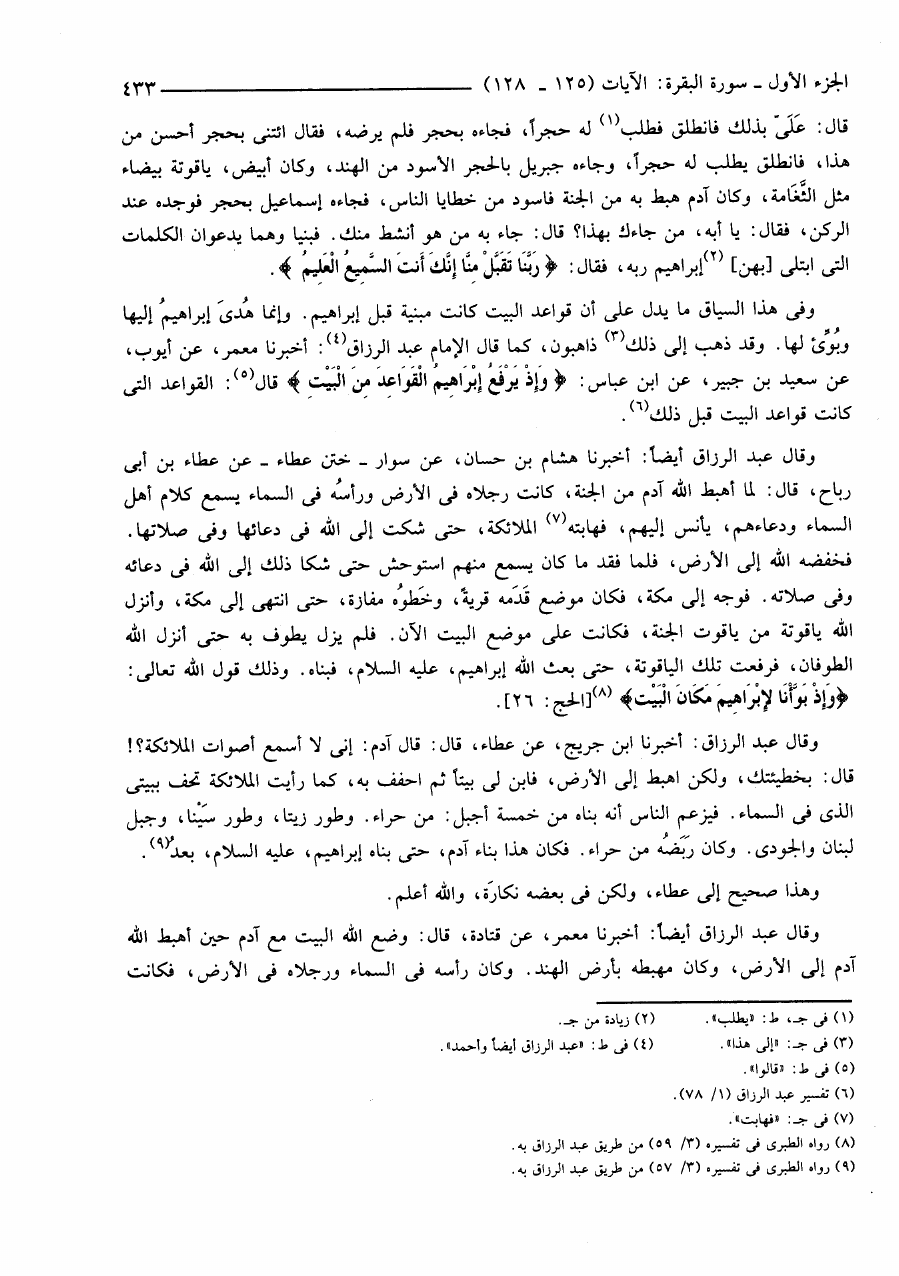 الجزء الأول ـ سورة البقرة: الآيات (١٢٥ ـ ١٢٨) ــــــــــــــــــــــــــــــــــــــــــــــــ ٤٣٣
قال: عَلَىّ بذلك فانطلق فطلب(١) له حجراً، فجاءه بحجر فلم يرضه، فقال ائتنى بحجر أحسن من
هذا، فانطلق يطلب له حجراً، وجاءه جبريل بالحجر الأسود من الهند، وكان أبيض، ياقوتة بيضاء
مثل الثَّغَامة، وكان آدم هبط به من الجنة فاسود من خطايا الناس، فجاءه إسماعيل بحجر فوجده عند
الركن، فقال: يا أبه، من جاءك بهذا؟ قال: جاء به من هو أنشط منك. فبنيا وهما يدعوان الكلمات
التى ابتلى [بهن] (٢)إبراهيم ربه، فقال: ﴿ رَبَّنَا تَقَبَّلْ مِنَّا إِنَّكَ أَنتَ السَّمِيعُ الْعَلِيمُ ﴾.
وفى هذا السياق ما يدل على أن قواعد البيت كانت مبنية قبل إبراهيم. وإنما هُدىَ إبراهيمُ إليها
وبُوِّئ لها. وقد ذهب إلى ذلك(٣) ذاهبون، كما قال الإمام عبد الرزاق(٤): أخبرنا معمر، عن أيوب،
عن سعيد بن جبير، عن ابن عباس: ﴿ وَإِذْ يَرْفَعُ إِبْرَاهِيمُ الْقَوَاعِدَ مِنَ الْبَيْتِ ﴾ قال(٥): القواعد التى
كانت قواعد البيت قبل ذلك(٦).
وقال عبد الرزاق أيضاً: أخبرنا هشام بن حسان، عن سوار ـ ختن عطاء ـ عن عطاء بن أبى
رباح، قال: لما أهبط الله آدم من الجنة، كانت رجلاه فى الأرض ورأسُه فى السماء يسمع كلام أهل
السماء ودعاءهم، يأنس إليهم، فهابته(٧) الملائكة، حتى شكت إلى الله فى دعائها وفى صلاتها.
فخفضه الله إلى الأرض، فلما فقد ما كان يسمع منهم استوحش حتى شكا ذلك إلى الله فى دعائه
وفى صلاته. فوجه إلى مكة، فكان موضع قَدَمه قريةً، وخَطوُه مفازة، حتى انتهى إلى مكة، وأنزل
الله ياقوتة من ياقوت الجنة، فكانت على موضع البيت الآن. فلم يزل يطوف به حتى أنزل الله
الطوفان، فرفعت تلك الياقوتة، حتى بعث الله إبراهيم، عليه السلام، فبناه. وذلك قول الله تعالى:
﴿وَإِذْ بَوَّأْنَا لإِبْرَاهِيمَ مَكَانَ الْبَيْت﴾ (٨)[الحج: ٢٦].
وقال عبد الرزاق: أخبرنا ابن جريج، عن عطاء، قال: قال آدم: إنى لا أسمع أصوات الملائكة؟!
قال: بخطيئتك، ولكن اهبط إلى الأرض، فابن لى بيتاً ثم احفف به، كما رأيت الملائكة تحف ببيتى
الذى فى السماء. فيزعم الناس أنه بناه من خمسة أجبل: من حراء. وطور زيتا، وطور سَيْنا، وجبل
لبنان والجودى. وكان رَبَضُه من حراء. فكان هذا بناء آدم، حتى بناه إبراهيم، عليه السلام، بعدُ(٩).
وهذا صحيح إلى عطاء، ولكن فى بعضه نكارَة، والله أعلم.
وقال عبد الرزاق أيضاً: أخبرنا معمر، عن قتادة، قال: وضع الله البيت مع آدم حين أهبط الله
آدم إلى الأرض، وكان مهبطه بأرض الهند. وكان رأسه فى السماء ورجلاه فى الأرض، فكانت
(١) فى جـ، ط: «يطلب». (٢) زيادة من جـ.
(٣) فى جـ: «إلى هذا». (٤) فى ط: «عبد الرزاق أيضاً وأحمد».
(٥) فى ط: «قالوا».
(٦) تفسير عبد الرزاق (١/ ٧٨).
(٧) فى جـ: «فهابت».
(٨) رواه الطبرى فى تفسيره (٣/ ٥٩) من طريق عبد الرزاق به.
(٩) رواه الطبرى فى تفسيره (٣/ ٥٧) من طريق عبد الرزاق به.